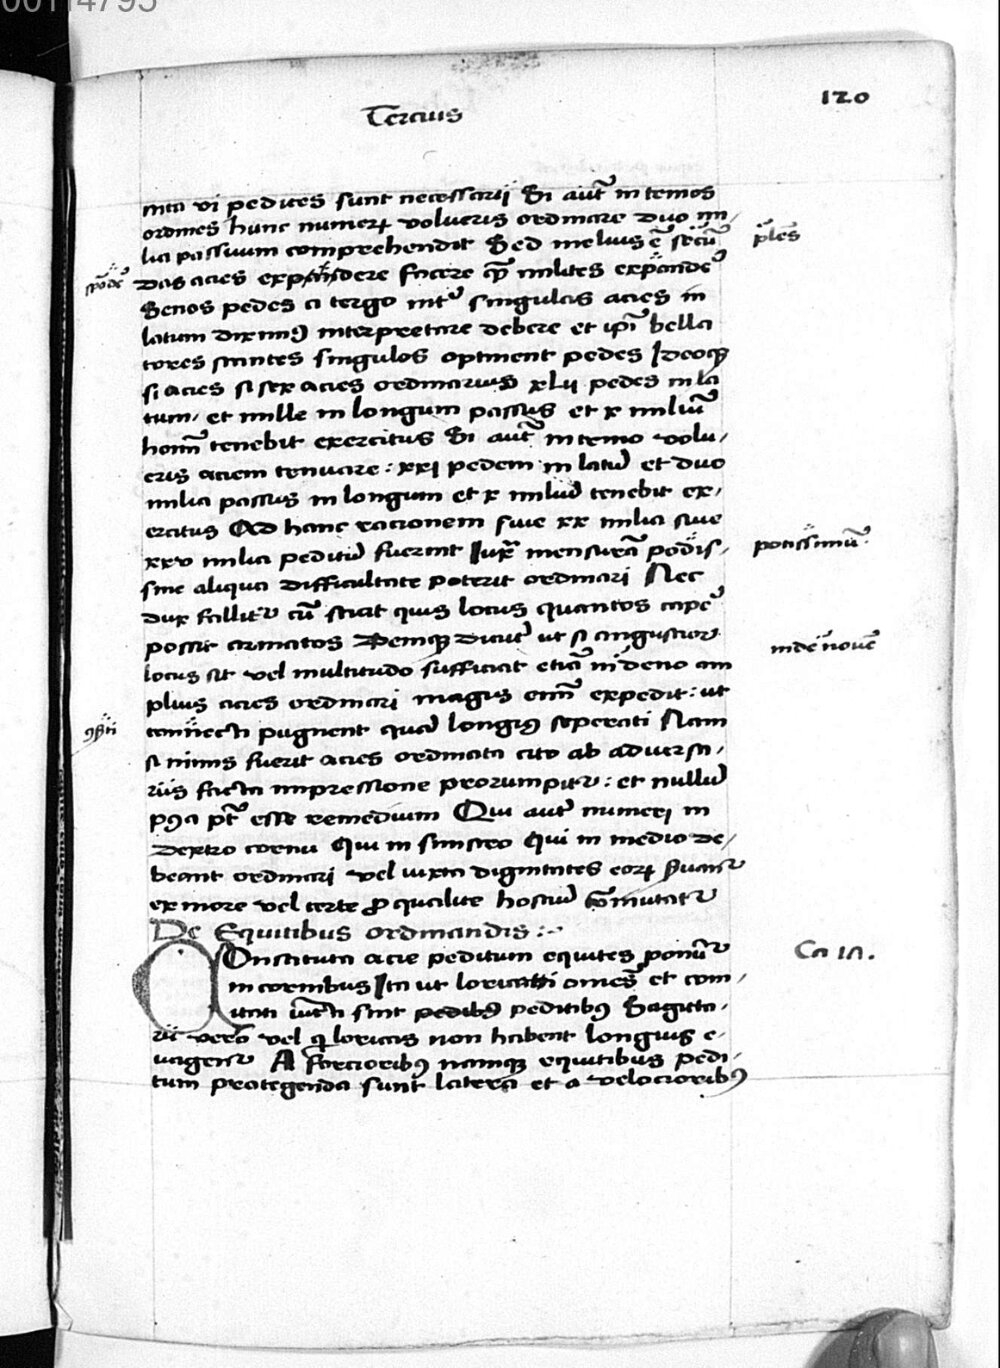 00114795
120
Tercius
cuta vi pedites sunt necessarii Si aut̃ in ternos
ordines hunc numerꝝ volueris ordinare duo mi-
lia passuum comprehendit Sed melius ẽ secũ
plẽs
spõde
das acies expandere facere qᷓ milites expande
Senos pedes a tergo int̉ singulas acies in
latum diximꝰ interpretare debere et ip̃i bella
tores stantes singulos optinent pedes Ideoqꝫ
si acies si sex acies ordinaruis xlii pedes in la
tum, et mille in longum passus et x miliũ
hom̃ tenebit exercitus Si aut̃ in terno volu-
eris aciem tenuare : xxi pedem in latũ et duo
milia passus in longum et x miliũ tenebit ex-
ercitus Ad hanc racionem siue xx milia siue
xxv milia peditũ fuerint Iuxᵃ mensurã podis-
potissimũ
sine aliqua difficultate poterit ordinari Nec
dux fallit᷑ cũ sciat quis locus quantos cape
possit armatos Deniqꝫ dicũt ut si angustior
locus sit vel multitudo sufficiat etiã in deno am
indẽ nouẽ
plius acies ordinari magis enĩ expedit : ut
ꝯiũcti
connecti pugnent quã longiꝰ seperati Nam
si nimis fuerit acies ordinata cito ab aduersa-
riis facta impressione prorumpit᷑ : et nullũ
pꝰea pt̃ esse remedium Qui aut̃ numeri in
dextro cornu Qui in sinistro Qui in medio de-
beant ordinari vel iuxta dignitates eorꝝ s̃uant᷑
ex more vel certe ꝓ qualite hostiũ cõmutat᷑
De Equitibus ordinandis :~
Onstituta acie peditum equites ponũt᷑
Ca 16.
in cornibus Ita ut loricati omẽs et con-
tati iũcti sint pedibꝰ peditibꝰ Sagitta-
rii verõ vel qͥ loricas non habent longius e-
uagent᷑ A forcioribꝰ namqꝫ equitibus pedi-
tum protegenda sunt latera et a velocioribꝰ